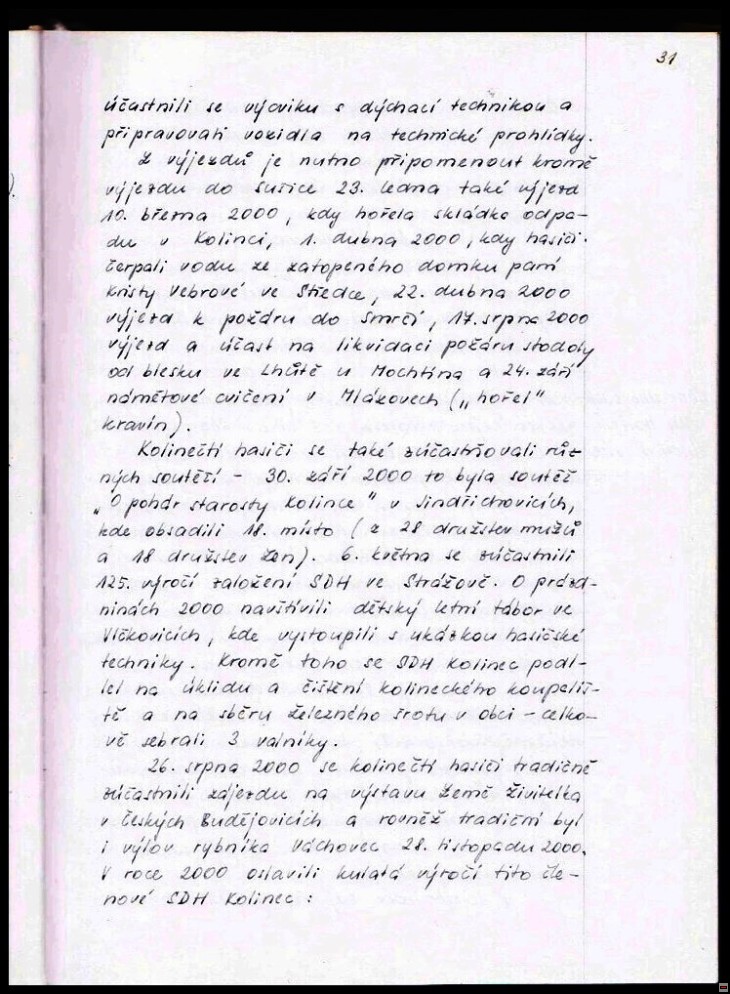 31
účastnili se výcviku s dýchací technikou a
připravovali vozidla na technické prohlídky.
Z výjezdů je nutno připomenout kromě
výjezdu do Sušice 23. ledna také výjezd
10. března 2000, kdy hořela skládka odpa-
du v Kolinci, 1. dubna 2000, kdy hasiči
čerpali vodu ze zatopeného domku paní
Kristy Vebrové ve Středce, 22. dubna 2000
výjezd k požáru do Smrčí, 17. srpna 2000
výjezd a účast na likvidaci požáru stodoly
od blesku ve Lhůtě u Mochtína a 24. září
námětové cvičení v Mlázovech („hořel"
kravín).
Kolinečtí hasiči se také zúčastňovali růz-
ných soutěží - 30. září 2000 to byla soutěž
„O pohár starosty Kolince" v Jindřichovicích,
kde obsadili 18. místo (z 28 družstev mužů
a 18 družstev žen). 6. května se zúčastnili
125. výročí založení SDH ve Strážově. O prázd-
ninách 2000 navštívili dětský letní tábor ve
Vlčkovicích, kde vystoupili s ukázkou hasičské
techniky. Kromě toho se SDH Kolinec podí-
lel na úklidu a čištění kolineckého koupališ-
tě a na sběru železného šrotu v obci - celko-
vě sebrali 3 valníky.
26. srpna 2000 se kolinečtí hasiči tradičně
zúčastnili zájezdu na výstavu Země živitelka
v Českých Budějovicích a rovněž tradiční byl
i výlov rybníka Váchovec 28. listopadu 2000.
V roce 2000 oslavili kulatá výročí tito čle-
nové SDH Kolinec: